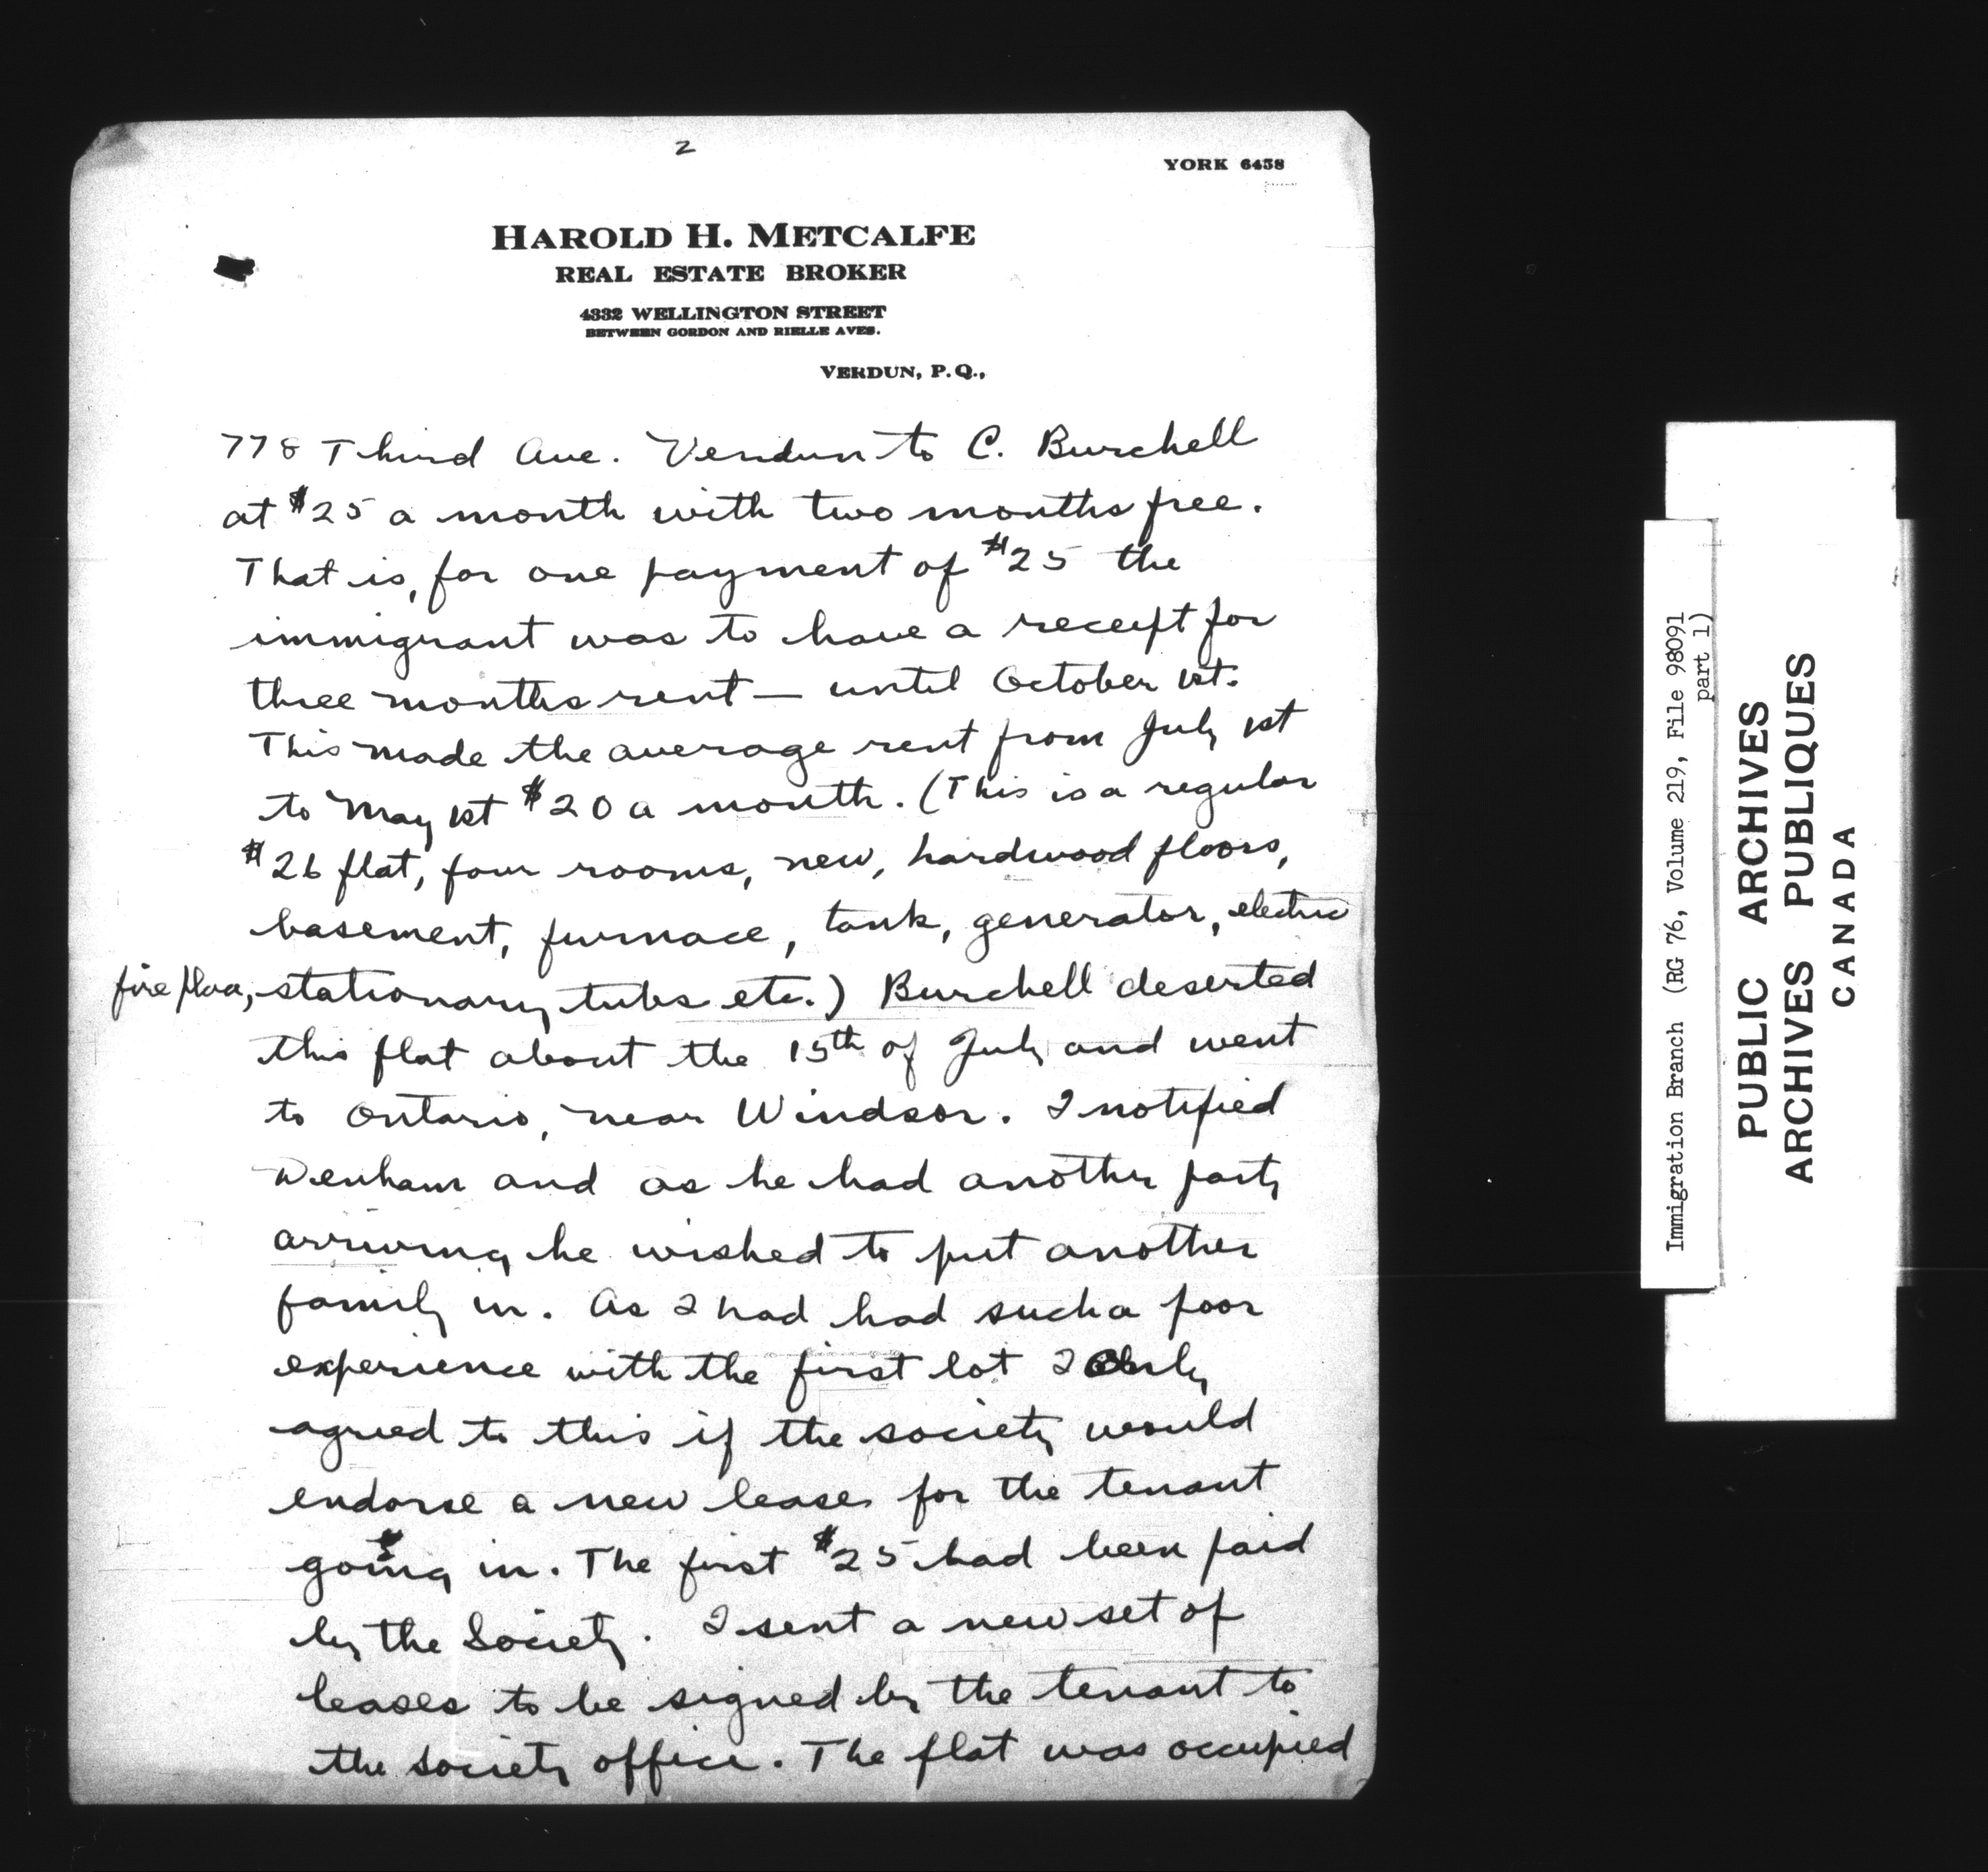 2
YORK 6438
HAROLD H. METCALFE
REAL ESTATE BROKER
4332 WELLINGTON STREET
BETWEEN GORDON AND RIELLE AVES.
VERDUN, P.Q.,
778 Third Ave. Verdun to C. Burchell
at $25 a month with two months free.
That is, for one payment of $25 the
immigrant was to have a receipt for
three months rent — until October 1st.
This made the average rent from July 1st
to May 1st $20 a month. (This is a regular
$26 flat, four rooms, new, hardwood floors,
basement, furnace, tank, generator, electric
fire place, stationary tubs etc.) Burchell deserted
this flat about the 15th of July and went
to Ontario, near Windsor. I notified
Denham and as he had another party
arriving he wished to put another
family in. As I had had such a poor
experience with the first lot I only
agreed to this if the society would
endorse a new lease for the tenant
going in. The first $25 had been paid
by the Society. I sent a new set of
leases to be signed by the tenant to
the society office. The flat was occupied
Immigration Branch (RG 76, Volume 219, File 98091
part 1)
PUBLIC ARCHIVES
ARCHIVES PUBLIQUES
CANADA